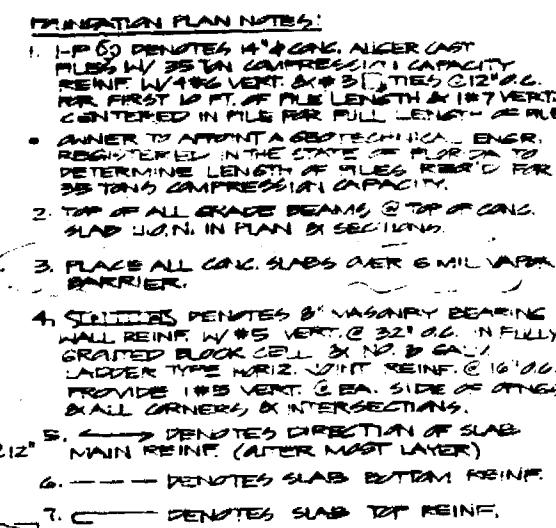 FOUNDATION PLAN NOTES:
1. 1-P DENOTES 14"ϕ CONC. AUGER CAST
PILES W/ 35 TON COMPRESSION CAPACITY
REINF. W/ 4#6 VERT. & #3 TIES @ 12" O.C.
FOR FIRST 10 FT. OF PILE LENGTH & 1#7 VERT.
CENTERED IN PILE FOR FULL LENGTH OF PILE
• OWNER TO APPOINT A GEOTECHNICAL ENGR.
REGISTERED IN THE STATE OF FLORIDA TO
DETERMINE LENGTH OF PILES REQ'D FOR
35 TONS COMPRESSION CAPACITY.
2. TOP OF ALL GRADE BEAMS @ TOP OF CONC.
SLAB U.O.N. IN PLAN & SECTIONS.
3. PLACE ALL CONC. SLABS OVER 6 MIL VAPOR
BARRIER.
4. DENOTES 8" MASONRY BEARING
WALL REINF. W/ #5 VERT. @ 32" O.C. IN FULLY
GROUTED BLOCK CELL & NO. 8 GALV.
LADDER TYPE HORIZ. JOINT REINF. @ 16" O.C.
PROVIDE 1#5 VERT. @ EA. SIDE OF OPNGS
& ALL CORNERS, & INTERSECTIONS.
5. DENOTES DIRECTION OF SLAB
@12" MAIN REINF. (OUTER MOST LAYER)
6. DENOTES SLAB BOTTOM REINF.
7. DENOTES SLAB TOP REINF.